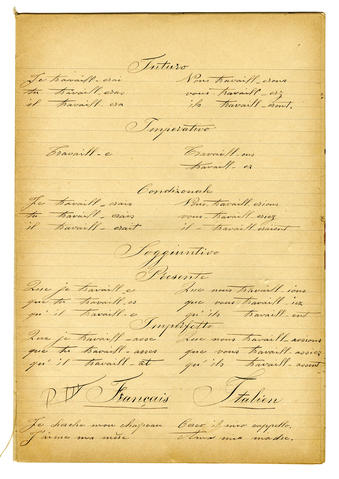 Futuro
Je travaill-erai Nous travaill-erons
tu travaill-eras vous travaill-erez
il travaill-era ils travaill-eront.
Imperativo
Travaill-e Travaill-ons
travaill-ez
Condizionale
Je travaill-erais Nous travaill-erions
tu travaill-erais vous travaill-eriez
il travaill-erait il travaill-eraient
Soggiuntivo
Presente
Que je travaill-e Que nous travaill-ions
que tu travaill-es que vous travaill-iez
qu'il travaill-e qu'ils travaill-ent
Imperfetto
Que je travaill-asse Que nous travaill-assions
que tu travaill-asses que vous travaill-assiez
qu'il travaill-ât qu'ils travaill-assent
Français Italien
Je cherche mon chapeau Cerco il mio cappello.
J'aime ma mère Amo mia madre.